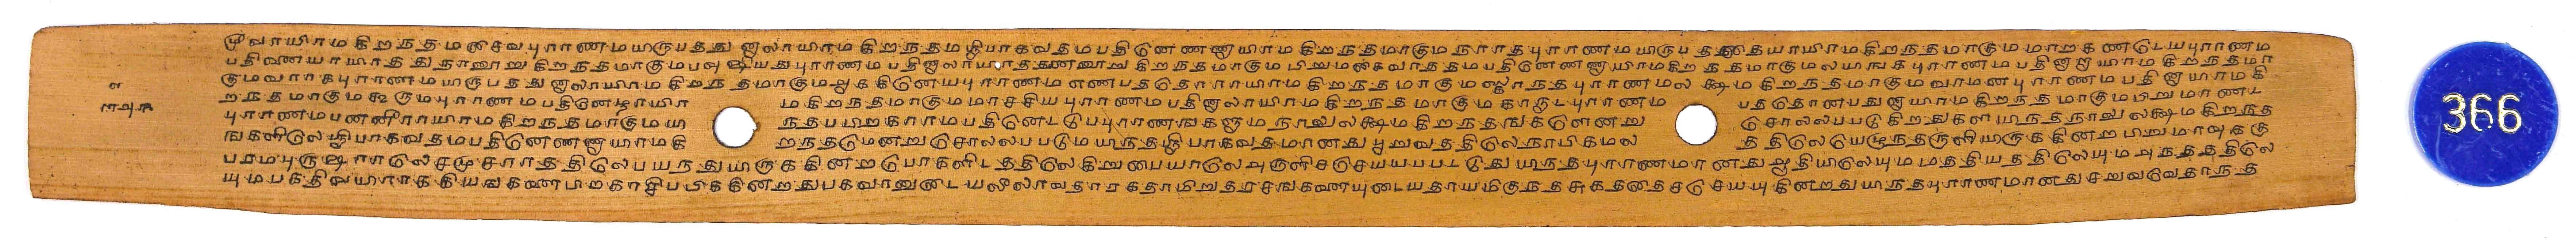 மூவாயிரமகிறநதமசைவபுராணமயிருபததுனாலாயிரமகிறநதமஸ்ரீபாகவதமபதினெணணாயிரமகிறநதமாகுமநாரதபுராணமயிருபததையாயிரமகிறநதமாகுமமாறகணடெயபுராணம
பதினையாயிரததுநாநூறுகிறநதமாகுமபவுஷியதுபுராணமபதினாலாயிரததணணூறுகிறநதமாகுமபிறுமகைவரததமபதினெணணாயிரமகிறநதமாகுமலயிஙகபுராணமபதினாயிரமகிறநதமா
குமவராகபுராணமயிருபததுனாலாயிரமகிறநதமாகுமஅககினெயபுராணமஎணபததொராயிரமகிறநதமாகுமஸ்காநதபுராணமலக்ஷமகிறநதமாகுமவாமனபுராணமபதினாயிரமகி
றநதமாகுமகூருமபுராணமபதினெழாயிர மகிறநதமாகுமமாசசியபுராணமபதினாலாயிரமகிறநதமாகுமகாருடபுராணம பததொனபதுனாயிரமகிறநதமாகுமபிறுமாணட
புராணமபனனீராயிரமகிறநதமாகுமயி நதபபிறகாரமபதினெடடுபபுராணஙகளுமநாலுலக்ஷமகிறநதஙகளெனறு சொலலபபடுகிறதுகளயிநதநாலுலக்ஷமகிறநத
ஙகளிலெஸ்ரீபாகவதமபதினெணணாயிரமகி றநதமெனறுசொலலபபடுமயிநதஸ்ரீபாகவதமானதுபூறுவததிலெநாபிகமல ததிலெயெழுநதருளியிருககினறபிறுமாவுககு
பரமபுருஷராலெசமூசாரததிலெபயநதுயிருககினறபொகளிடததிலெகிறுபையாலெஅருளிசசெயயபபடடதுயிநதபுராணமானதுஆதியிலெயுமமததியததிலெயுமஅநதததிலெ
யுமபகதிவயிராககியஙகளைபிறகாசிபபிககினறதுபகவானுடையலீலாவதாரகதாமிறுதரசஙகளையுடையதாயமிகுநதசுகததைசசெயயுகினறதுயிநதபுராணமானதுசறுவவெதாநத
366